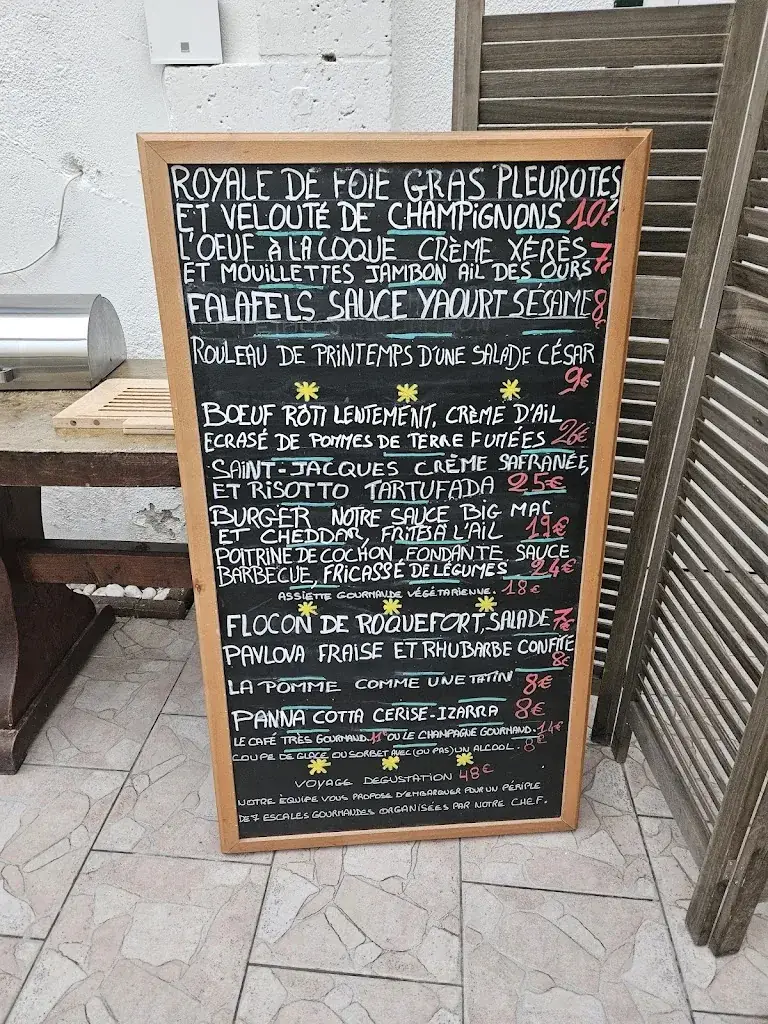 ROYALE DE FOIE GRAS PLEUROTES
ET VELOUTÉ DE CHAMPIGNONS 10€
L'OEUF À LA COQUE CRÈME XÉRÈS
ET MOUILLETTES JAMBON AIL DES OURS 7€
FALAFELS SAUCE YAOURT SÉSAME 8€
ROULEAU DE PRINTEMPS D'UNE SALADE CÉSAR
9€
BOEUF RÔTI LENTEMENT, CRÈME D'AIL
ECRASÉ DE POMMES DE TERRE FUMÉES 26€
SAINT-JACQUES CRÈME SAFRANÉE,
ET RISOTTO TARTUFADA 25€
BURGER NOTRE SAUCE BIG MAC
ET CHEDDAR, FRITES À L'AIL 19€
POITRINE DE COCHON FONDANTE SAUCE
BARBECUE, FRICASSÉ DE LÉGUMES 24€
ASSIETTE GOURMANDE VÉGÉTARIENNE. 18€
FLOCON DE ROQUEFORT, SALADE 7€
PAVLOVA FRAISE ET RHUBARBE CONFITE
8€
LA POMME COMME UNE TATIN 8€
PANNA COTTA CERISE-IZARRA 8€
LE CAFÉ TRÈS GOURMAND. 11€ OU LE CHAMPAGNE GOURMAND. 14€
COUPE DE GLACE OU SORBET AVEC (OU PAS) UN ALCOOL. 8€
VOYAGE DEGUSTATION 48€
NOTRE ÉQUIPE VOUS PROPOSE D'EMBARQUER POUR UN PÉRIPLE
DE 7 ESCALES GOURMANDES ORGANISÉES PAR NOTRE CHEF.